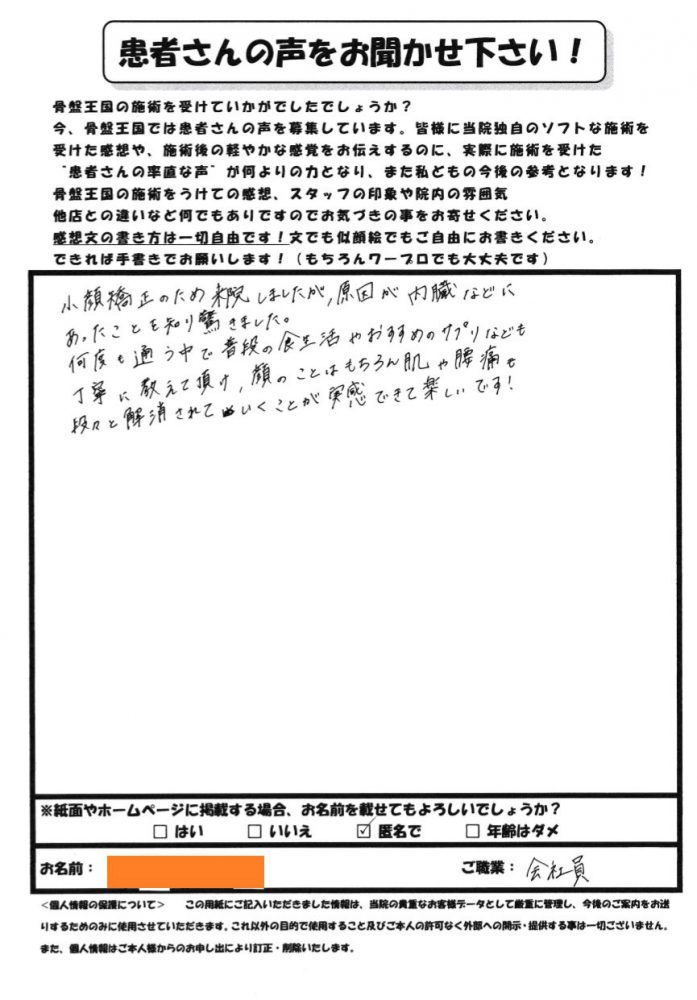 患者さんの声をお聞かせ下さい！
骨盤王国の施術を受けていかがでしたでしょうか？
今、骨盤王国では患者さんの声を募集しています。皆様に当院独自のソフトな施術を
受けた感想や、施術後の軽やかな感覚をお伝えするのに、実際に施術を受けた
"患者さんの率直な声"が何よりの力となり、また私どもの今後の参考となります！
骨盤王国の施術をうけての感想、スタッフの印象や院内の雰囲気
他店との違いなど何でもありですのでお気づきの事をお寄せください。
感想文の書き方は一切自由です！文でも似顔絵でもご自由にお書きください。
できれば手書きでお願いします！（もちろんワープロでも大丈夫です）
小顔矯正のため来院しましたが、原因が内臓などに
あったことを知り驚きました。
何度も通う中で普段の食生活やおすすめのサプリなども
丁寧に教えて頂け、顔のことはもちろん肌や腰痛も
段々と解消されていくことが実感できて楽しいです！
※紙面やホームページに掲載する場合、お名前を載せてもよろしいでしょうか？
□ はい □ いいえ ☑ 匿名で □ 年齢はダメ
お名前： ご職業： 会社員
＜個人情報の保護について＞ この用紙にご記入いただきました情報は、当院の貴重なお客様データとして厳重に管理し、今後のご案内をお送
りするためのみに使用させていただきます。これ以外の目的で使用すること及びご本人の許可なく外部への開示・提供する事は一切ございません。
また、個人情報はご本人様からのお申し出により訂正・削除いたします。